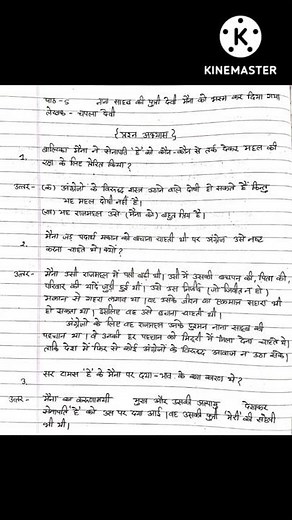 KINEMASTER
पाठ-5 नाना साहब की पुत्री देवी मैना को भस्म कर दिया गया
लेखक- चपला देवी
{प्रश्न अभ्यास}
1. बालिका मैना ने सेनापति 'हे' को कौन-कौन से तर्क देकर महल की
रक्षा के लिए प्रेरित किया?
उत्तर- (क) अंग्रेजों के विरुद्ध शस्त्र उठाने वाले दोषी हो सकते हैं किन्तु
यह महल दोषी नहीं है।
(ख) यह राजमहल उसे (मैना को) बहुत प्रिय है।
2. मैना जड़ पदार्थ मकान को बचाना चाहती थी पर अंग्रेज उसे नष्ट
करना चाहते थे। क्यों?
उत्तर- मैना उसी राजमहल में पली बढ़ी थी। उसी में उसकी बचपन की, पिता की,
परिवार की यादें जुड़ी हुई थीं। उसे इस निर्जीव (जो जीवित न हो)
मकान से गहरा लगाव था। वह उसके जीवन का एकमात्र सहारा भी
हो सकता था। इसलिए वह उसे बचाना चाहती थी।
अंग्रेजों के लिए वह राजमहल उनके दुश्मन नाना साहब की
पहचान था। वे उनकी हर पहचान को मिट्टी में मिला देना चाहते थे।
ताकि देश में फिर से कोई अंग्रेजों के विरुद्ध आवाज न उठा सके।
3. सर टामस 'हे' के मैना पर दया-भाव के क्या कारण थे?
उत्तर- मैना का करुणामयी मुख और उसकी अल्पायु देखकर
सेनापति 'हे' को उस पर दया आई। वह उसकी पुत्री मेरी की सहेली
भी थी।